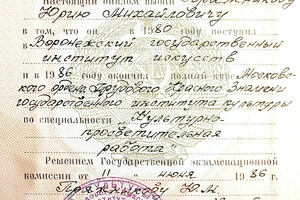 Настоящий диплом выдан
Юрию Михайловичу
в том, что он в 1980 году поступил
в Воронежский государственный
институт искусств
и в 1986 году окончил полный курс Московс-
кого ордена Трудового Красного Знамени
государственного института культуры
по специальности „Культурно-
просветительная
работа"
Решением Государственной экзаменационной
комиссии от 11 июня 1986 г.
Пряжникову Ю.М.